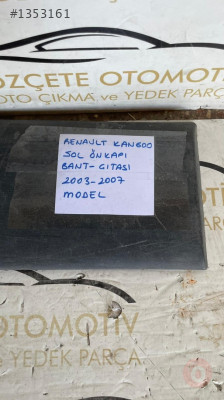 #1353161
ÖZÇETE OTOMOTİV
OTO ÇIKMA ve YEDEK PARÇA
RENAULT KANGOO
SOL ÖN KAPI
BANT-ÇITASI
2003-2007
MODEL
OTOMOTİV
VE YEDEK PARÇA